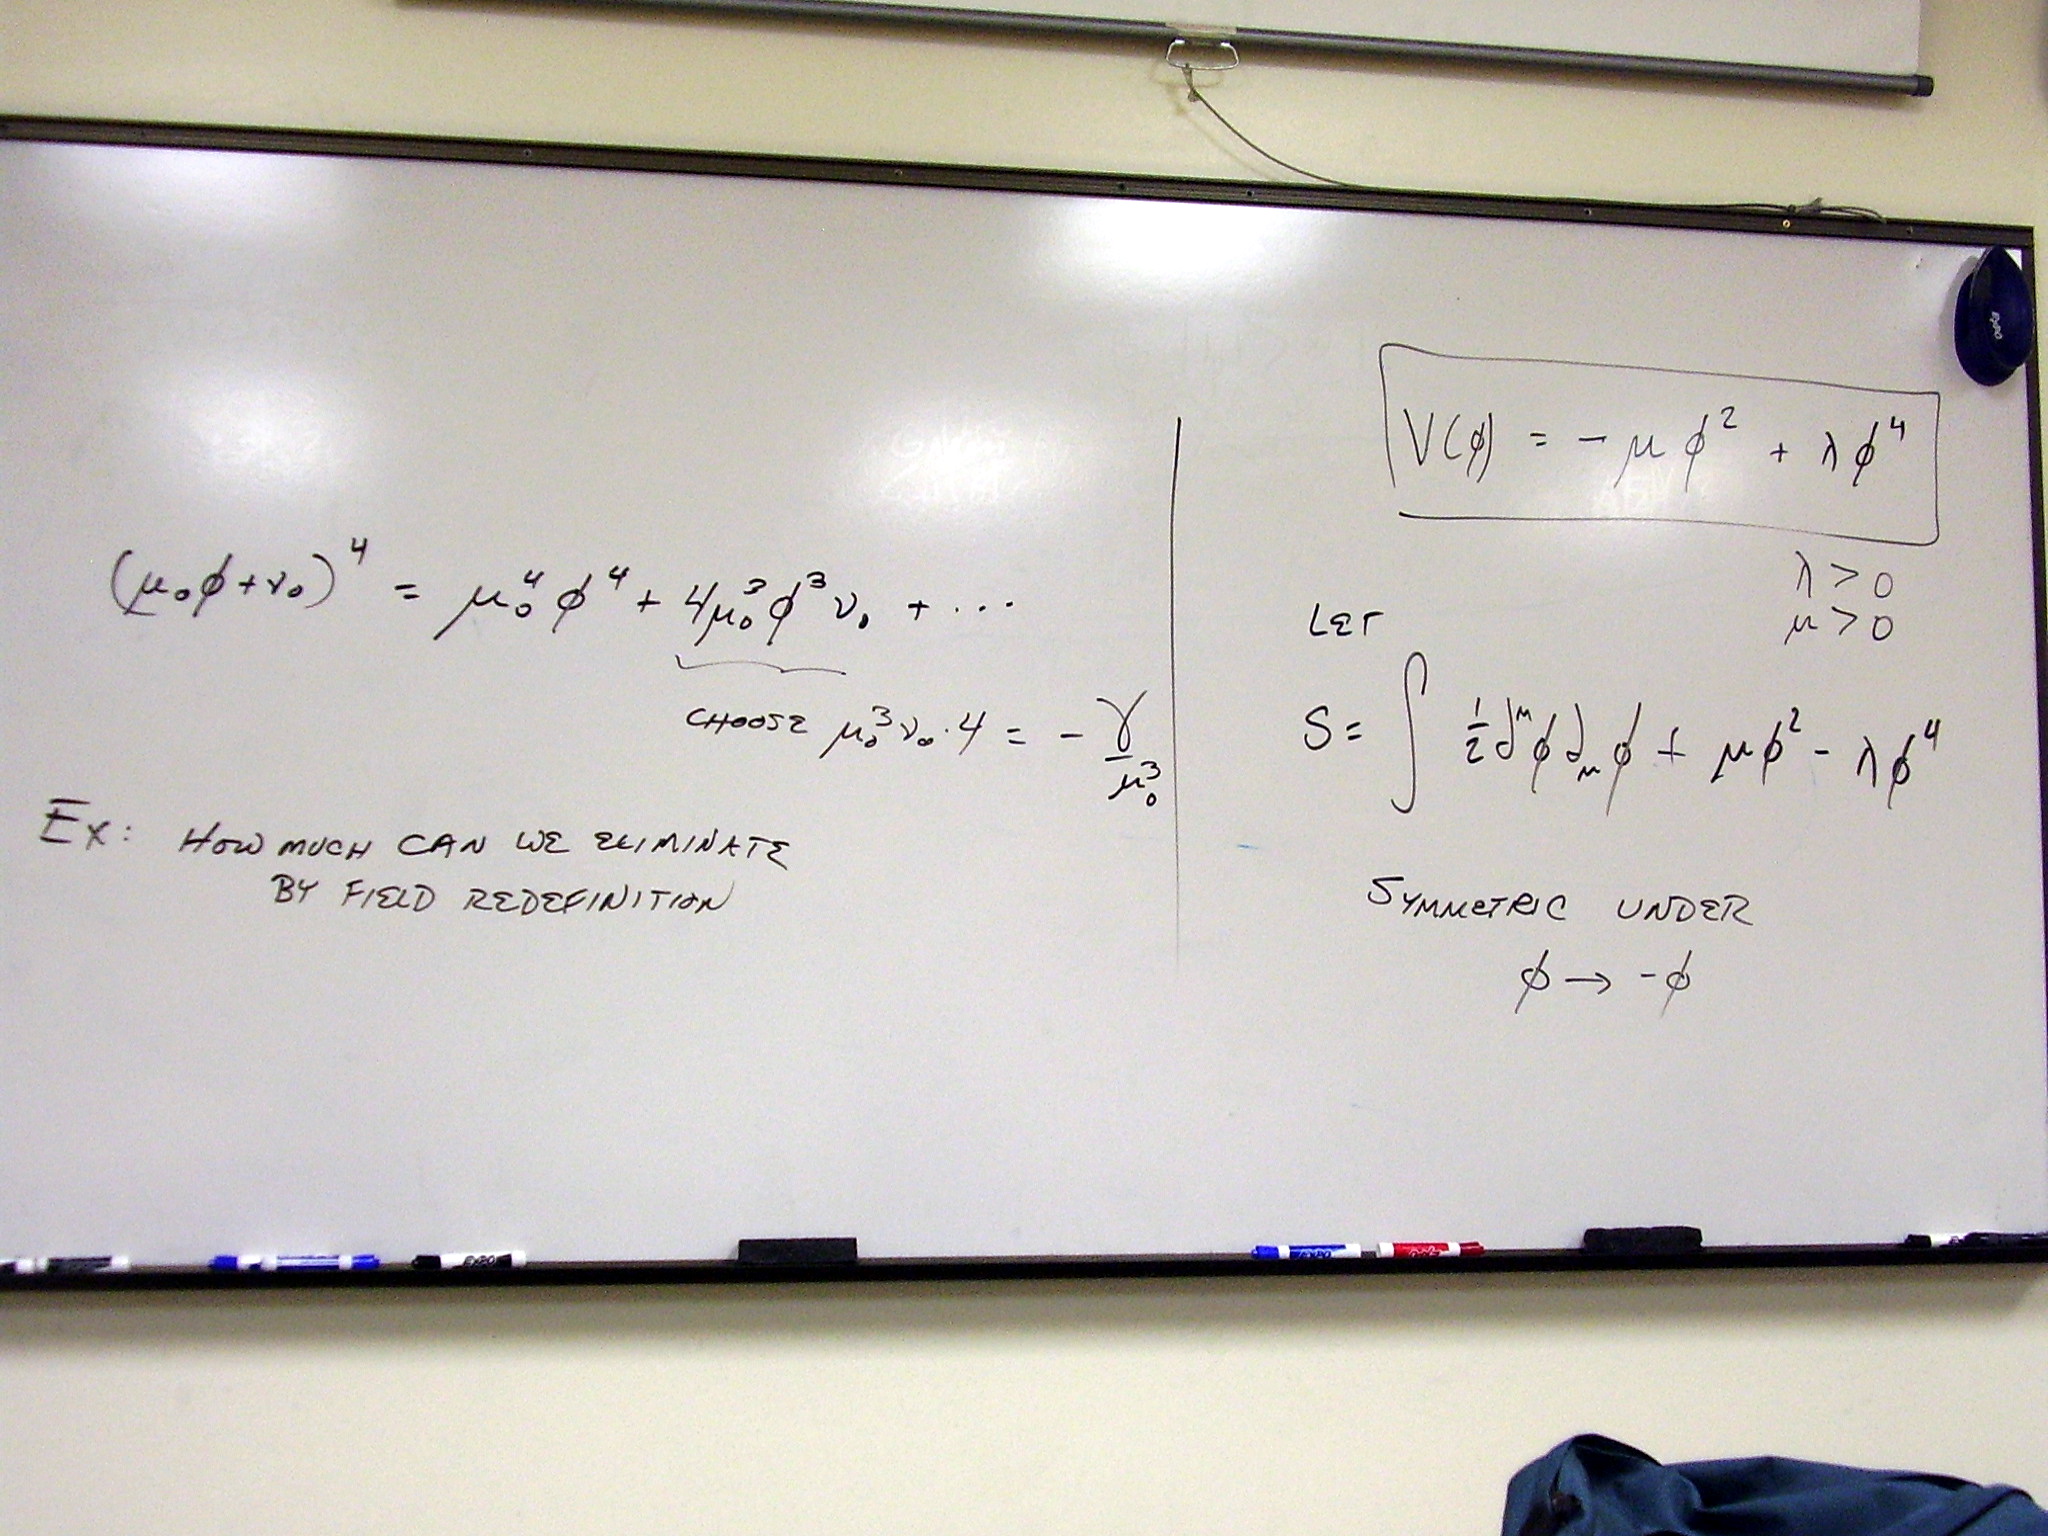 (μ₀φ+ν₀)⁴ = μ₀⁴φ⁴ + 4μ₀³φ³ν₀ + ...
CHOOSE μ₀³ν₀·4 = - γ/μ₀³
Ex: HOW MUCH CAN WE ELIMINATE
BY FIELD REDEFINITION
V(φ) = - μφ² + λφ⁴
λ > 0
μ > 0
LET
S = ∫ ½ ∂^μφ ∂_μφ + μφ² - λφ⁴
SYMMETRIC UNDER
φ → -φ
EXPO
EXPO